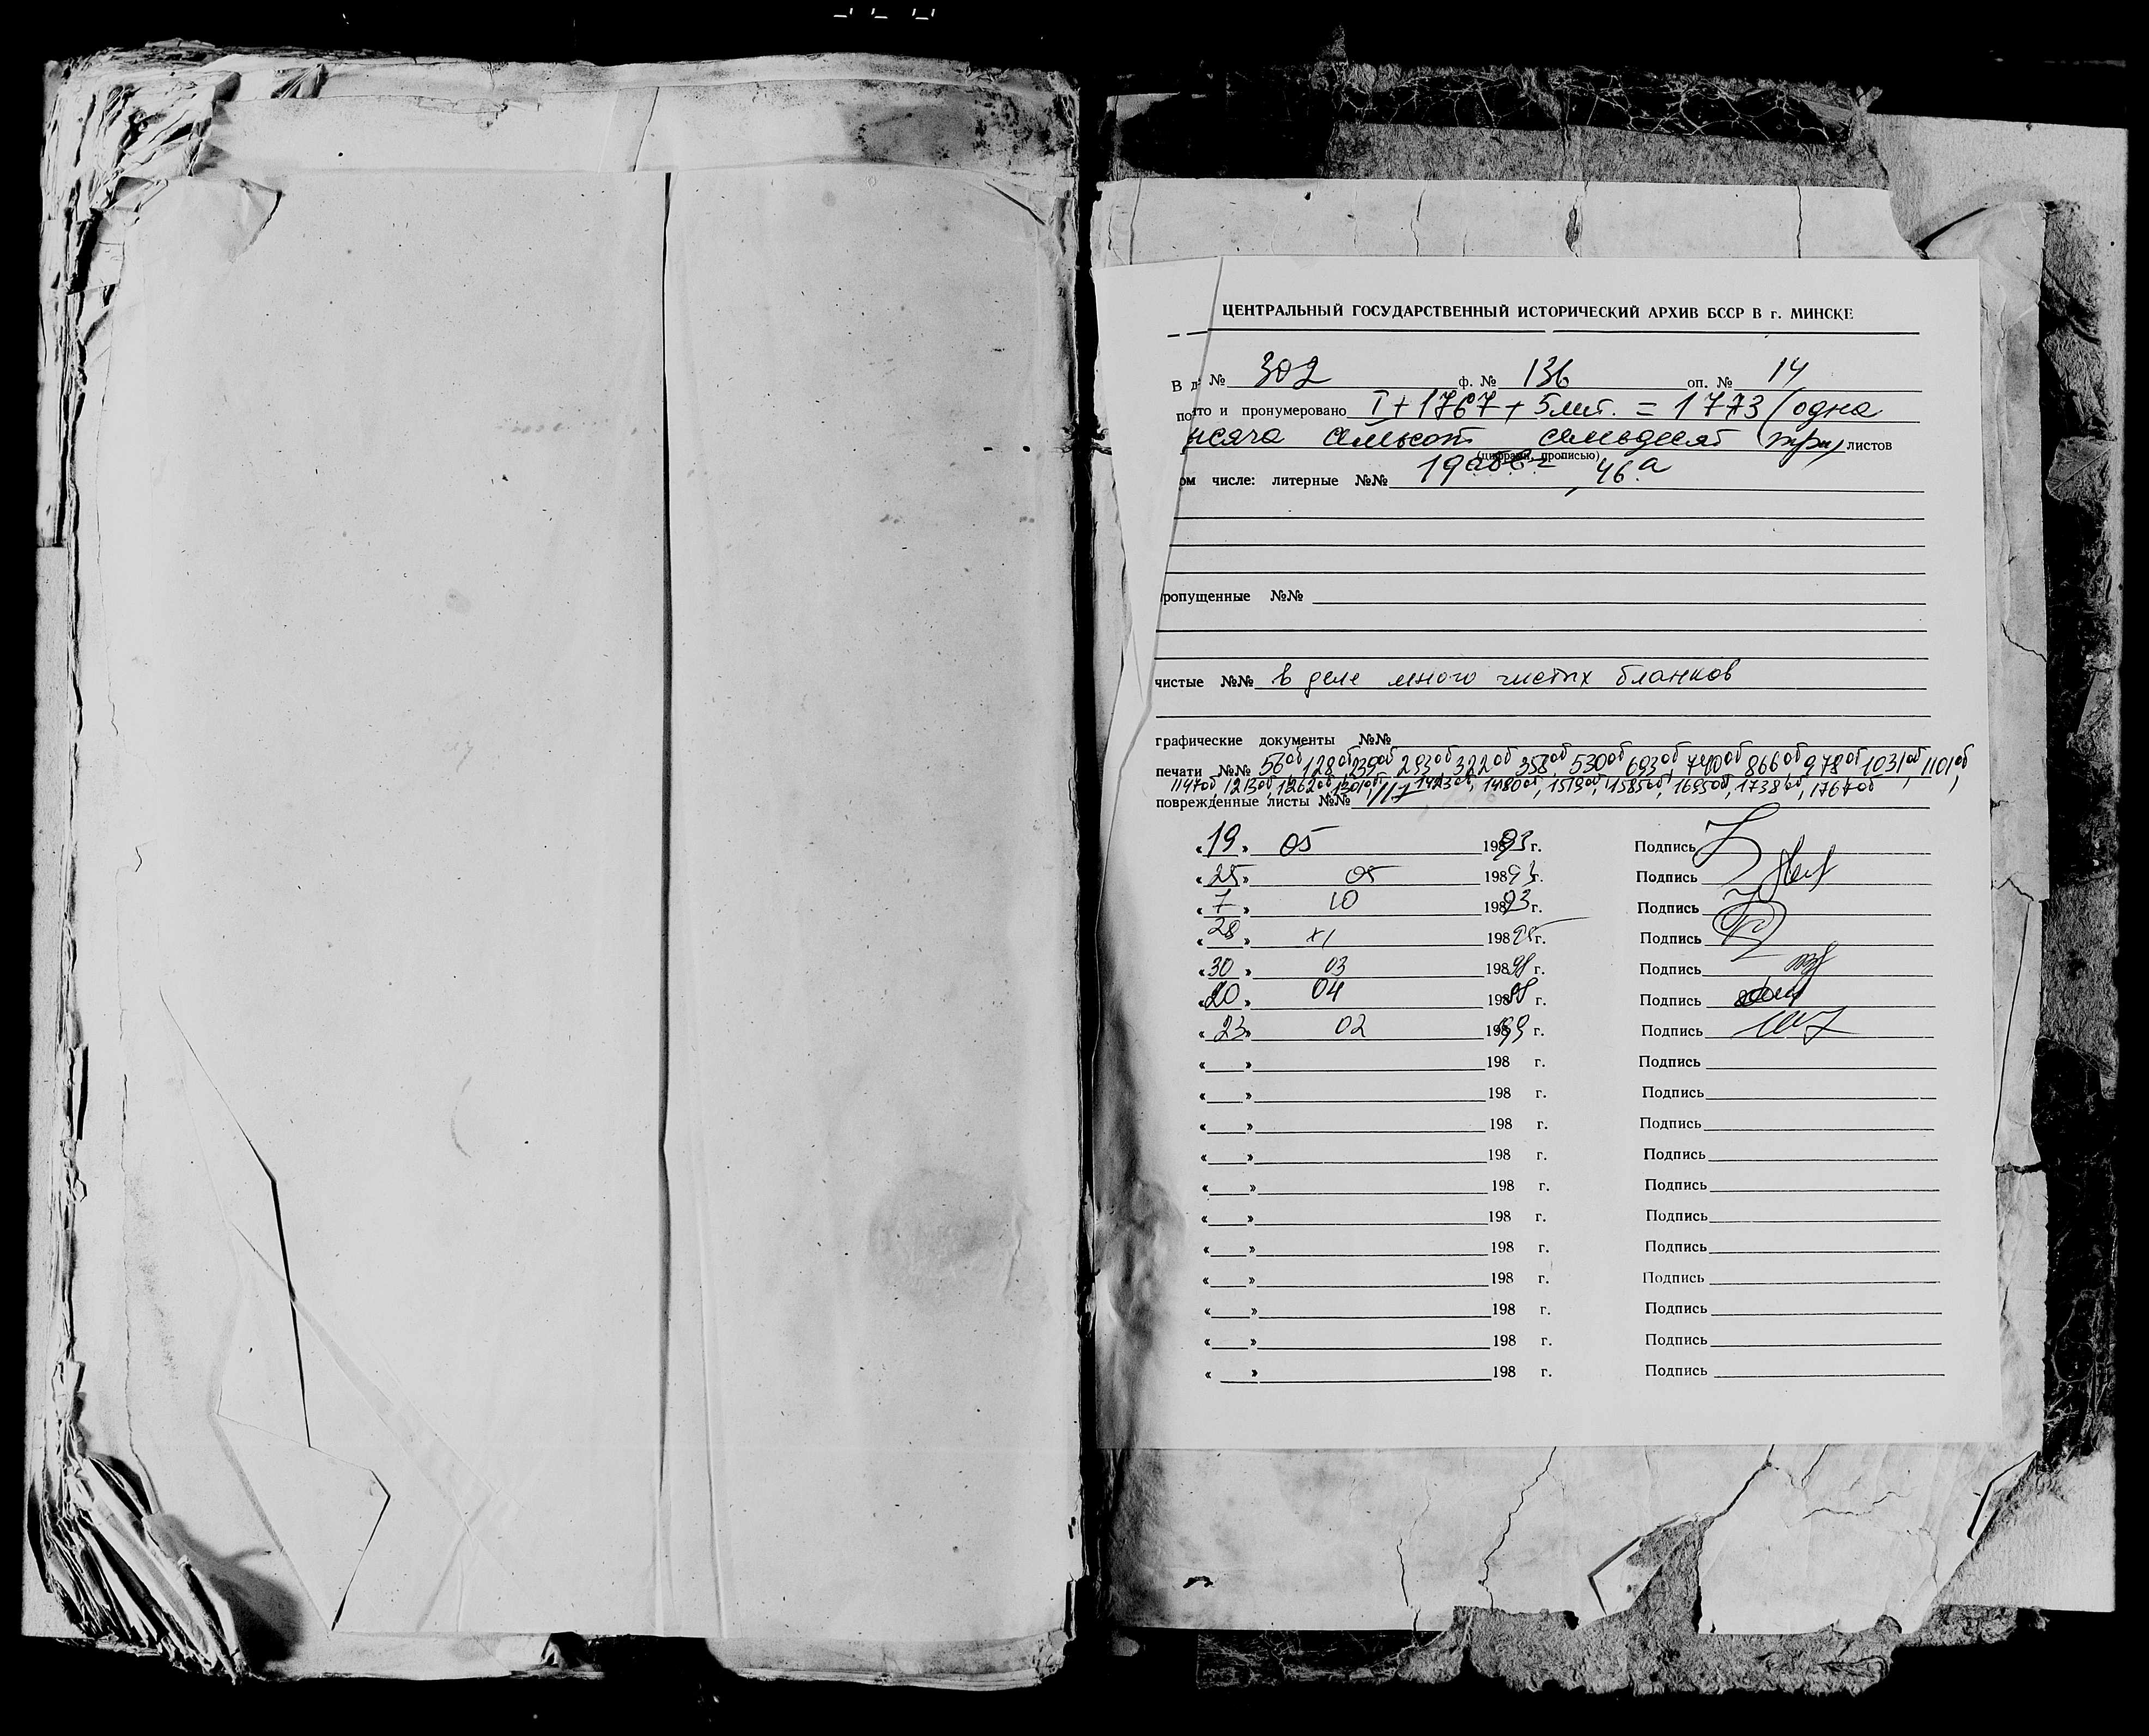 ЦЕНТРАЛЬНЫЙ ГОСУДАРСТВЕННЫЙ ИСТОРИЧЕСКИЙ АРХИВ БССР В г. МИНСКЕ
В д. № 302 ф. № 136 оп. № 14
то и пронумеровано I + 1767 + 5 лит. = 1773 (одна
ысяча семьсот семьдесят три) листов
(цифрами, прописью)
ом числе: литерные №№ 19абвг, 46а
ропущенные №№
чистые №№ в деле много чистых бланков
графические документы №№
печати №№ 56об 128об 239об 293об 322об 358об 530об 693об 740об 866об 978об 1031об, 1101об
1147об, 1213об, 1262об, 1301об, 1423об, 1480об, 1519об, 1585об, 1695об, 1738об, 1767об
поврежденные листы №№ 117
«19» 05 198 93 г. Подпись
«25» 05 198 93 г. Подпись
«7» 10 198 93 г. Подпись
«28» XI 198 95 г. Подпись
«30» 03 198 98 г. Подпись
«20» 04 198 98 г. Подпись
«23» 02 198 99 г. Подпись
« » 198 г. Подпись
« » 198 г. Подпись
« » 198 г. Подпись
« » 198 г. Подпись
« » 198 г. Подпись
« » 198 г. Подпись
« » 198 г. Подпись
« » 198 г. Подпись
« » 198 г. Подпись
« » 198 г. Подпись
« » 198 г. Подпись